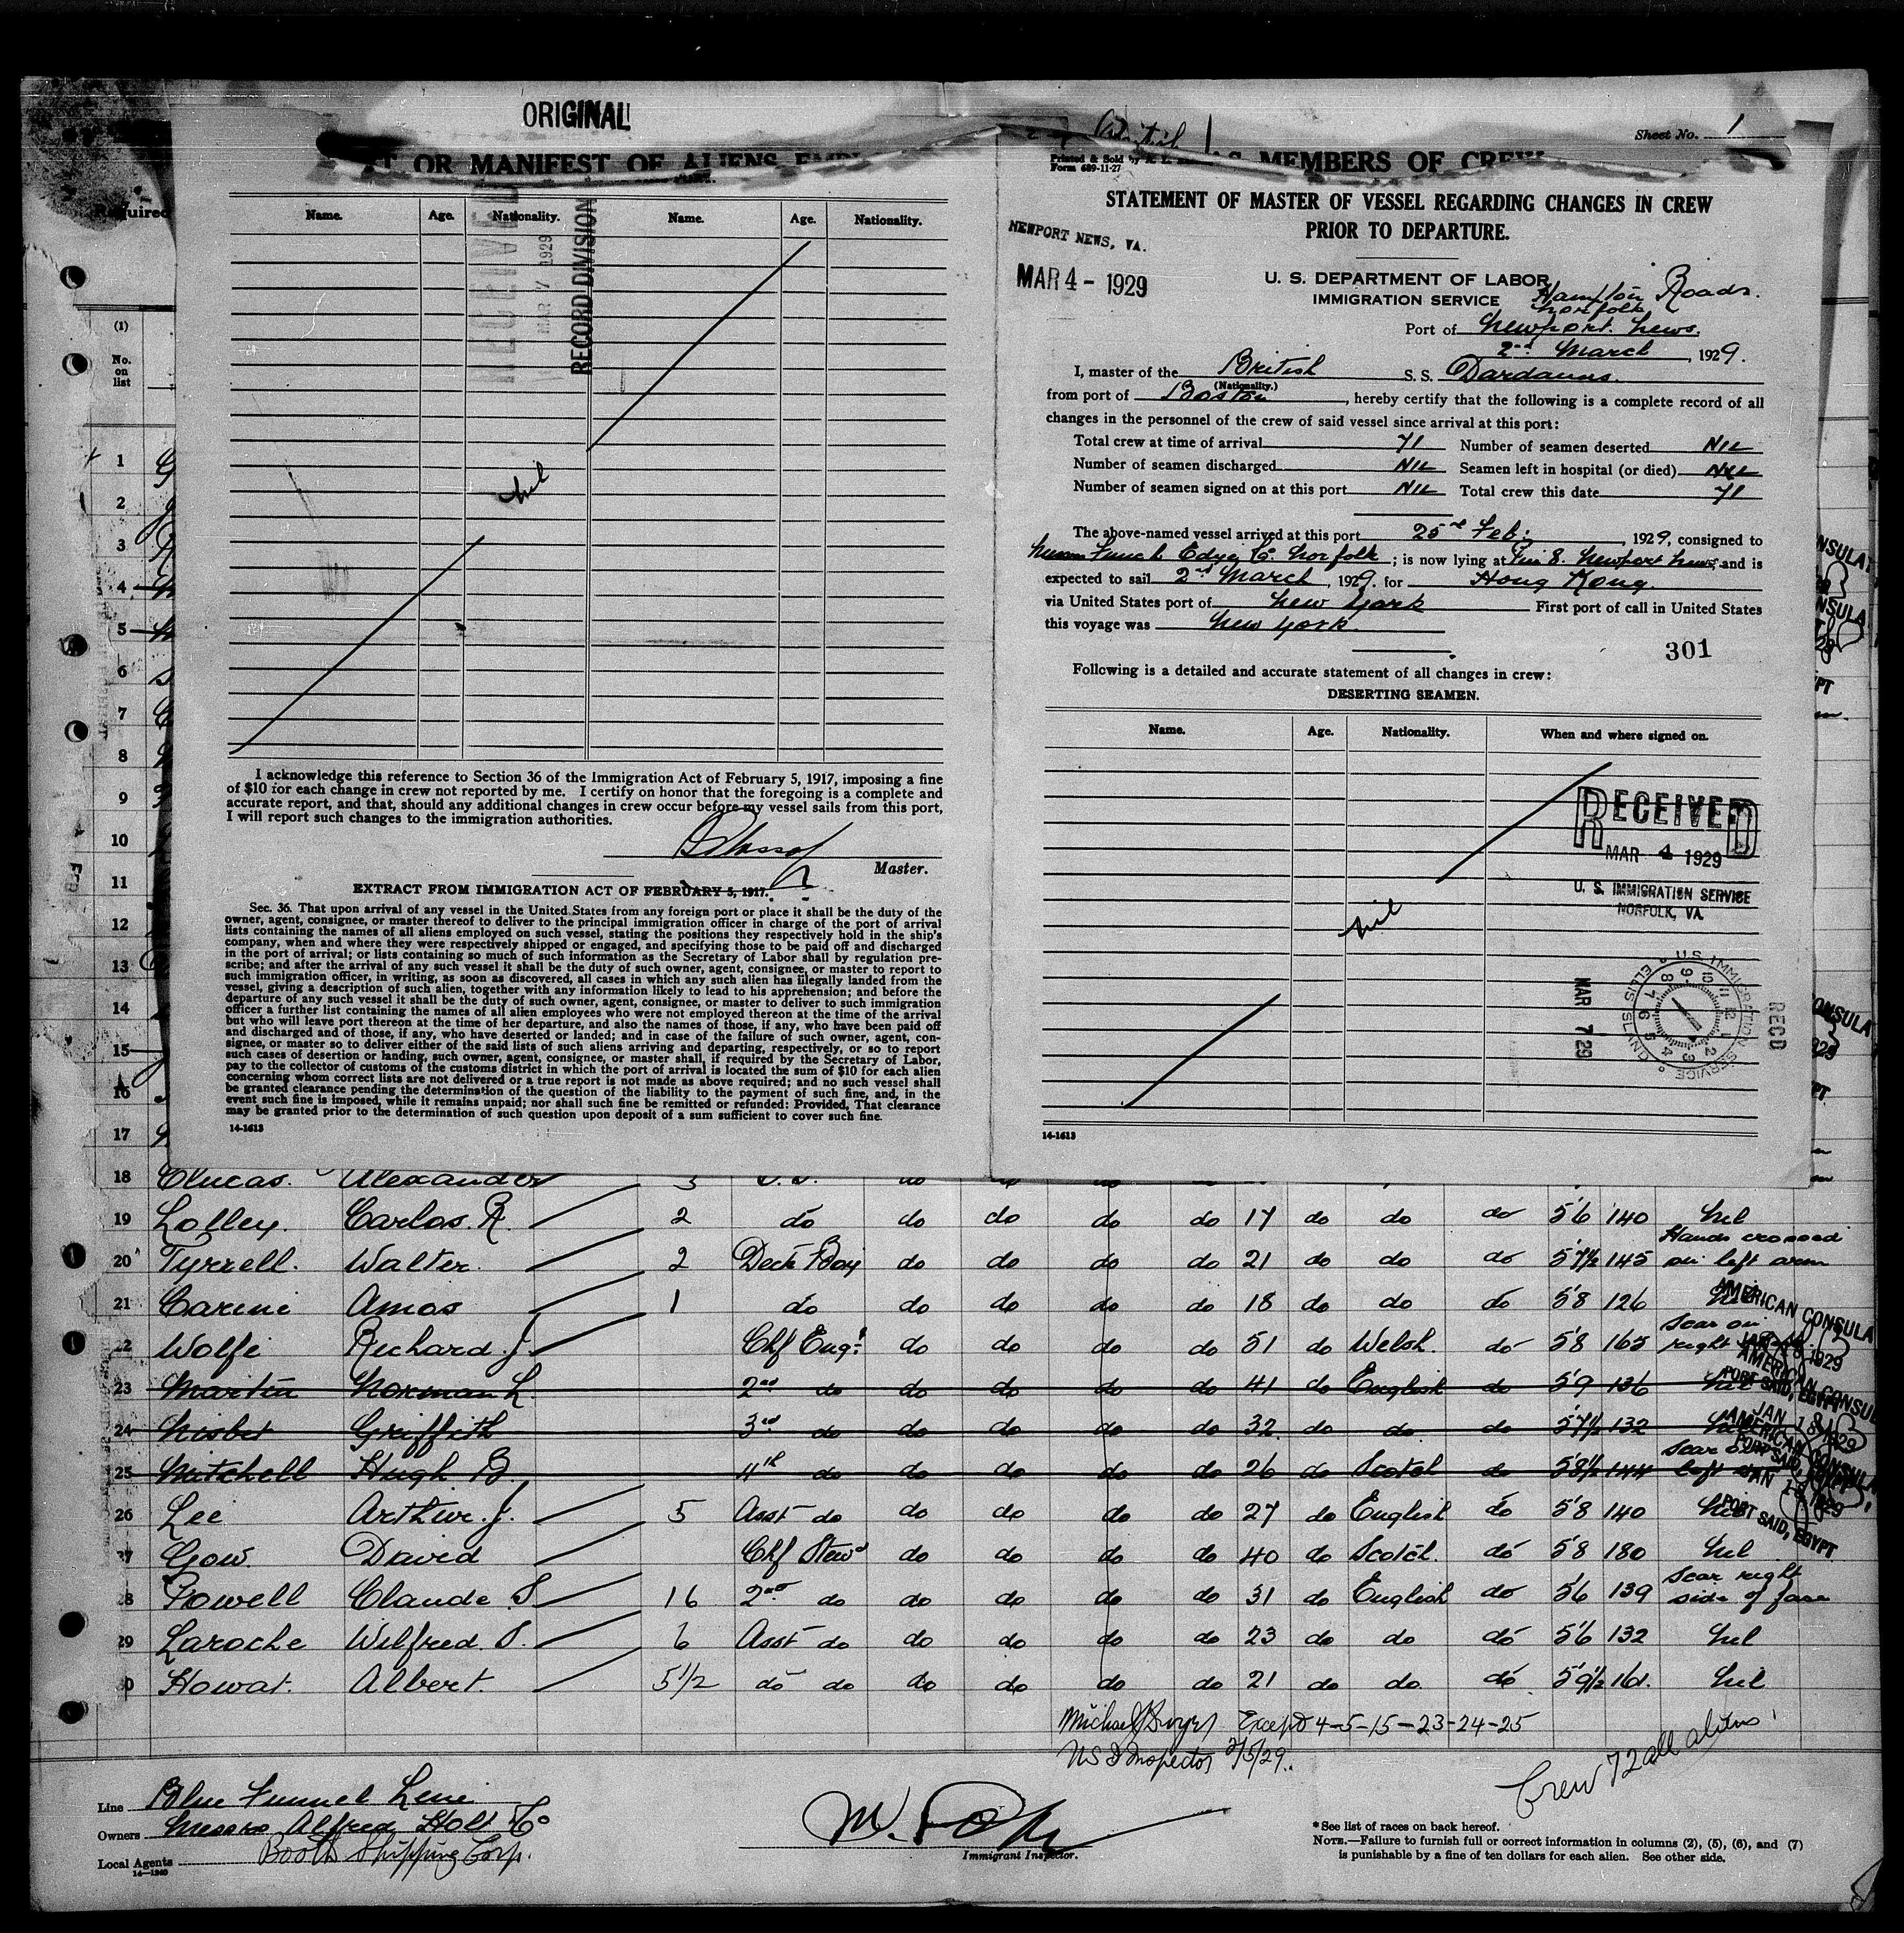 ORIGINAL
OR MANIFEST OF ALIENS
MEMBERS OF CREW
Sheet No. 1
Required
Name. Age. Nationality. Name. Age. Nationality.
RECEIVED
MAR 7 1929
RECORD DIVISION
nil
I acknowledge this reference to Section 36 of the Immigration Act of February 5, 1917, imposing a fine
of $10 for each change in crew not reported by me. I certify on honor that the foregoing is a complete and
accurate report, and that, should any additional changes in crew occur before my vessel sails from this port,
I will report such changes to the immigration authorities.
Master.
EXTRACT FROM IMMIGRATION ACT OF FEBRUARY 5, 1917.
Sec. 36. That upon arrival of any vessel in the United States from any foreign port or place it shall be the duty of the
owner, agent, consignee, or master thereof to deliver to the principal immigration officer in charge of the port of arrival
lists containing the names of all aliens employed on such vessel, stating the positions they respectively hold in the ship's
company, when and where they were respectively shipped or engaged, and specifying those to be paid off and discharged
in the port of arrival; or lists containing so much of such information as the Secretary of Labor shall by regulation pre-
scribe; and after the arrival of any such vessel it shall be the duty of such owner, agent, consignee, or master to report to
such immigration officer, in writing, as soon as discovered, all cases in which any such alien has illegally landed from the
vessel, giving a description of such alien, together with any information likely to lead to his apprehension; and before the
departure of any such vessel it shall be the duty of such owner, agent, consignee, or master to deliver to such immigration
officer a further list containing the names of all alien employees who were not employed thereon at the time of the arrival
but who will leave port thereon at the time of her departure, and also the names of those, if any, who have been paid off
and discharged and of those, if any, who have deserted or landed; and in case of the failure of such owner, agent, con-
signee, or master so to deliver either of the said lists of such aliens arriving and departing, respectively, or so to report
such cases of desertion or landing, such owner, agent, consignee, or master shall, if required by the Secretary of Labor,
pay to the collector of customs of the customs district in which the port of arrival is located the sum of $10 for each alien
concerning whom correct lists are not delivered or a true report is not made as above required; and no such vessel shall
be granted clearance pending the determination of the question of the liability to the payment of such fine, and, in the
event such fine is imposed, while it remains unpaid; nor shall such fine be remitted or refunded: Provided, That clearance
may be granted prior to the determination of such question upon deposit of a sum sufficient to cover such fine.
14-1613
Printed & Sold by
Form 689-11-27
STATEMENT OF MASTER OF VESSEL REGARDING CHANGES IN CREW
PRIOR TO DEPARTURE.
NEWPORT NEWS, VA.
MAR 4 - 1929
U. S. DEPARTMENT OF LABOR
IMMIGRATION SERVICE
Hampton Roads.
Norfolk
Port of Newport News.
2nd March, 1929.
I, master of the British S. S. Dardanus.
(Nationality.)
from port of Boston, hereby certify that the following is a complete record of all
changes in the personnel of the crew of said vessel since arrival at this port:
Total crew at time of arrival 71 Number of seamen deserted NIL
Number of seamen discharged NIL Seamen left in hospital (or died) NIL
Number of seamen signed on at this port NIL Total crew this date 71
The above-named vessel arrived at this port 25th Feb., 1929, consigned to
Funch Edye Co Norfolk; is now lying at Pier 8. Newport News, and is
expected to sail 2nd March, 1929. for Hong Kong.
via United States port of New York First port of call in United States
this voyage was New York.
301
Following is a detailed and accurate statement of all changes in crew:
DESERTING SEAMEN.
Name. Age. Nationality. When and where signed on.
RECEIVED
MAR 4 1929
U. S. IMMIGRATION SERVICE
NORFOLK, VA.
nil
U.S. IMMIGRATION SERVICE ELLIS ISLAND
MAR 7 '29
REC'D
14-1613
(1)
No.
on
list
1
2
3
4
5
6
7
8
9
10
11
12
13
14
15
16
17
18 Clucas. Alexander
19 Lolley. Carlos. R. 2 do do do do do 17 do do do 5'6 140 Nil
20 Tyrrell. Walter. 2 Deck Boy do do do do 21 do do do 5'7½ 145 Hands crossed on left arm
21 Carini Amos 1 do do do do do 18 do do do 5'8 126 Nil
22 Wolfe Richard. J. Chf Engr do do do do 51 do Welsh. do 5'8 165 Scar on right
23 Martin Norman L. 2nd do do do do do 41 do English do 5'9 136 Nil
24 Nisbet Griffith 3rd do do do do do 32 do do do 5'7½ 132 Nil
25 Mitchell Hugh B. 4th do do do do do 26 do Scotch do 5'8½ 144 Scar on left
26 Lee Arthur. J. 5 Asst do do do do do 27 do English do 5'8 140 Nil
27 Gow. David Chf Stewd do do do do 40 do Scotch. do 5'8 180 Nil
28 Powell Claude S. 16 2nd do do do do do 31 do English do 5'6 139 Scar right side of face
29 Laroche Wilfred. S. 6 Asst do do do do do 23 do do do 5'6 132 Nil
30 Howat. Albert. 5½ do do do do do do 21 do do do 5'9½ 161. Nil
AMERICAN CONSULA
JAN 18 1929
PORT SAID, EGYPT
Michael Dwyer Except 4-5-15-23-24-25
US Inspector 2/5/29.
Crew 72 all aliens.
Line Blue Funnel Line
Owners Messrs Alfred Holt & Co
Local Agents Booth Shipping Corp.
14-1240
Immigrant Inspector.
* See list of races on back hereof.
NOTE.—Failure to furnish full or correct information in columns (2), (5), (6), and (7)
is punishable by a fine of ten dollars for each alien. See other side.